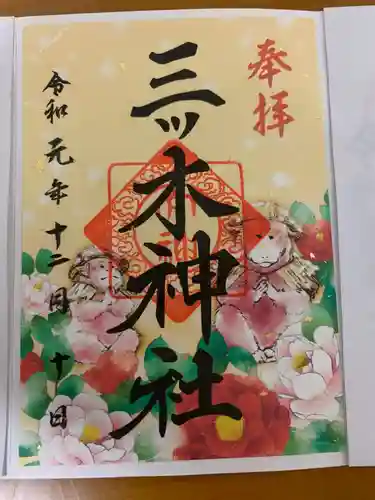 奉拝
三ッ木神社
令和元年十二月十日